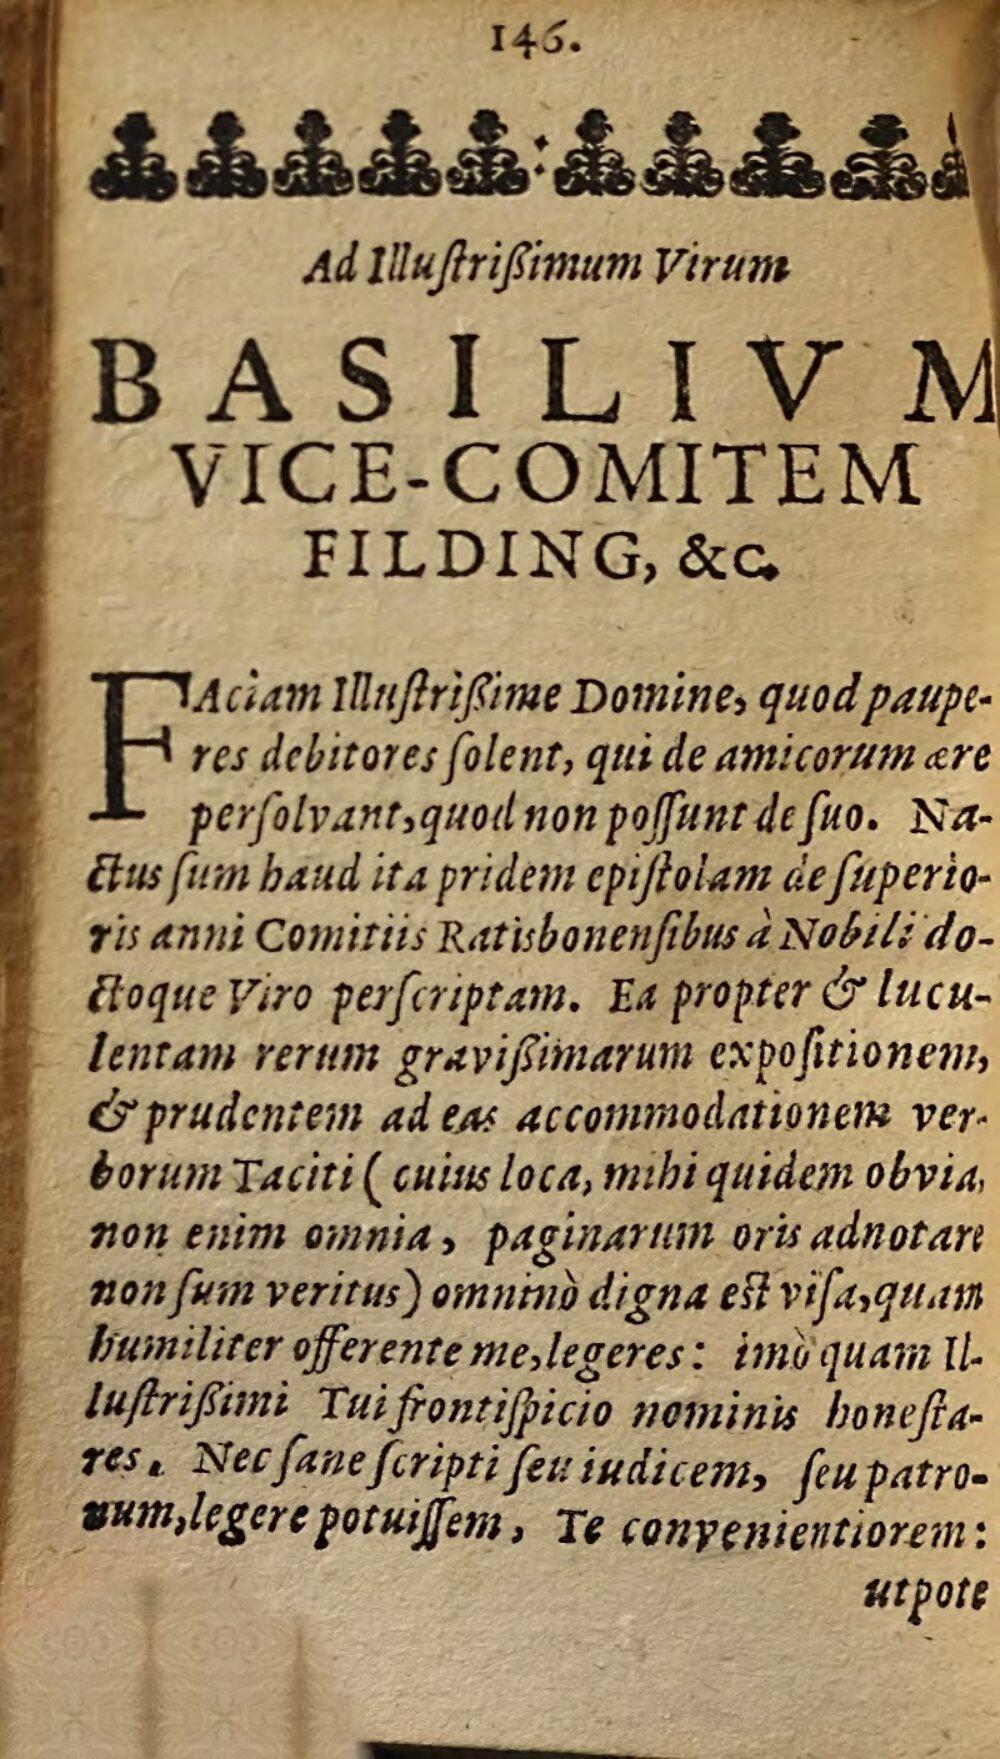 146.
Ad Illuſtrißimum Virum
BASILIVM
VICE-COMITEM
FILDING, &c.
FAciam Illuſtrißime Domine, quod paupe-
res debitores ſolent, qui de amicorum ære
perſolvant, quod non poſſunt de ſuo. Na-
ctus ſum haud ita pridem epiſtolam de ſuperio-
ris anni Comitiis Ratisbonenſibus à Nobili do-
ctoque Viro perſcriptam. Ea propter & lucu-
lentam rerum gravißimarum expoſitionem,
& prudentem ad eas accommodationem ver-
borum Taciti ( cuius loca, mihi quidem obvia,
non enim omnia, paginarum oris adnotare
non ſum veritus) omninò digna eſt viſa, quam
humiliter offerente me, legeres: imò quam Il-
luſtrißimi Tui frontiſpicio nominis honeſta-
res. Nec ſane ſcripti ſeu iudicem, ſeu patro-
num, legere potuiſſem, Te convenientiorem:
utpote